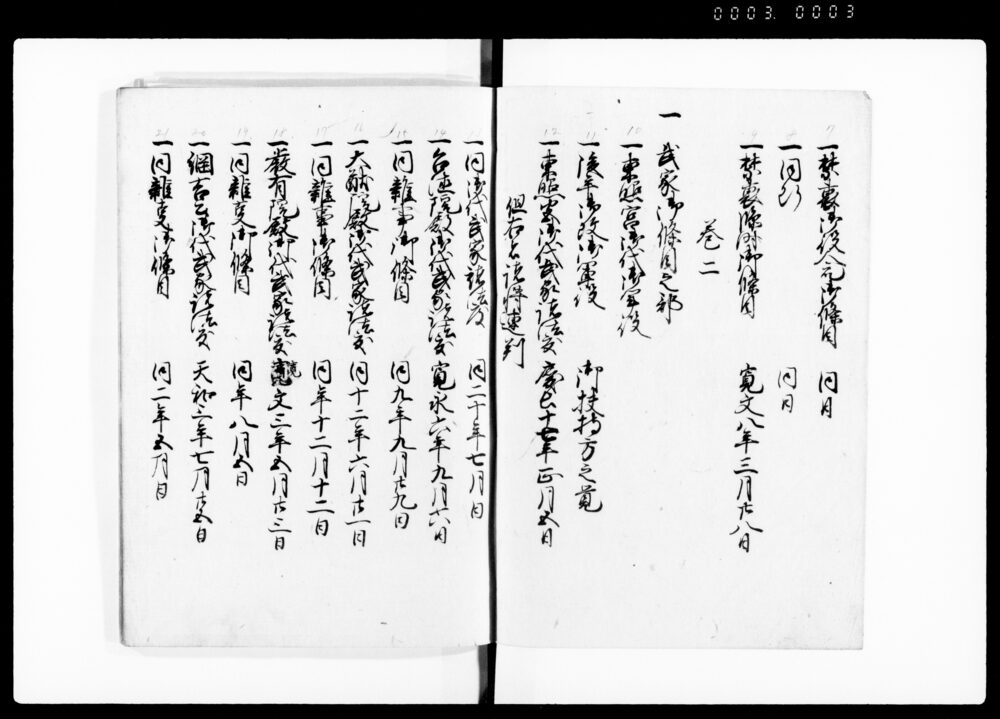 0003. 0003
7
一禁裏御役人元御條目 同月
8
一同断 同月
9
一禁裏條外御條目 寛文八年三月廿八日
巻二
一 武家御條目之部
10
一東照宮御代御軍役
11
一後年御改御軍役 御扶持方之覚
12
一東照宮御代武家諸法度 慶長十七年正月五日
但右者諸将連判
13
一同御代武家諸法度 同二十年七月日
14
一台徳院殿御代武家諸法度 寛永六年九月六日
15
一同雑事御條目 同九年九月廿九日
16
一大猷院殿御代武家諸法度 同十二年六月廿一日
17
一同雑事御條目 同年十二月十二日
18
一厳有院殿御代武家諸法度 寛文三年五月廿三日
19
一同雑事御條目 同年八月五日
20
一綱吉公御代武家諸法度 天和三年七月廿五日
21
一同雑事御條目 同二年五月日